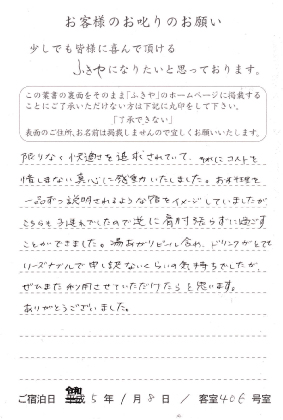 お客様のお叱りのお願い
少しでも皆様に喜んで頂ける
ふきやになりたいと思っております。
この葉書の裏面をそのまま「ふきや」のホームページに掲載する
ことにご了承いただけない方は下記に丸印をして下さい。
「了承できない」
表面のご住所、お名前は掲載しませんので宜しくお願いします。
限りなく快適を追求されていて、コストを
惜しまない真心に感動いたしました。お料理を
一品ずつ説明されるような宿をイメージしていましたが
こちらも子連れでしたので逆に肩肘張らずに過ごす
ことができました。湯あがりビール含め、ドリンクがとても
リーズナブルで申し訳ないくらいの気持ちでしたが、
ぜひまた利用させていただけたらと思います。
ありがとうございました。
ご宿泊日 令和 5年 1月 8日 / 客室406号室